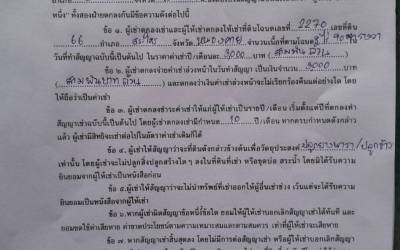 หนึ่ง" ทั้งสองฝ่ายตกลงกันมีข้อความดังต่อไปนี้
ข้อ 1. ผู้เช่าตกลงเช่าและผู้ให้เช่าตกลงให้เช่าที่ดินโฉนดเลขที่ 2270 เลขที่ดิน
66 อำเภอ สระใคร จังหวัด หนองคาย จำนวนเนื้อที่ตามโฉนด
วันที่ทำสัญญาฉบับนี้เป็นต้นไป ในราคาค่าเช่าปี/เดือนละ 3000 (สามพันบาท
ข้อ 2. ผู้เช่าตกลงจ่ายค่าเช่าล่วงหน้าในวันทำสัญญา เป็นเงินจำนวน 3000
(สามพันบาทถ้วน) และตกลงว่าเงินค่าเช่าล่วงหน้าจะไม่เรียกร้องคืนแต่อย่างใด โดย
ให้ถือว่าเป็นค่าเช่า
ข้อ 3. ผู้เช่าตกลงชำระค่าเช่าให้แก่ผู้ให้เช่าเป็นรายปี/เดือน เริ่มตั้งแต่ปีที่ตกลงทำ
สัญญาเช่าฉบับนี้เป็นต้นไป โดยผู้เช่าตกลงเช่ามีกำหนด 10 ปี/เดือน หากครบกำหนดดังกล่าว
แล้ว ผู้เช่ามีสิทธิจะเช่าต่อไปในอัตราค่าเช่าเดิมก็ได้
ข้อ 4. ผู้เช่าให้สัญญาว่าจะใช้ที่ดินดังกล่าวข้างต้นเพื่อวัตถุประสงค์ ปลูกยางพารา/ปลูกข้าว
เท่านั้น โดยผู้เช่าจะไม่ปลูกสิ่งปลูกสร้างใด ๆ ลงในที่ดินที่เช่า หรือขุดบ่อ สระน้ำ โดยมิได้รับความ
ยินยอมจากผู้ให้เช่าเป็นหนังสือก่อน
ข้อ 5. ผู้เช่าให้สัญญาว่าจะไม่นำทรัพย์ที่เช่าออกให้ผู้อื่นเช่าช่วง เว้นแต่จะได้รับความ
ยินยอมเป็นหนังสือจากผู้ให้เช่า
ข้อ 6. หากผู้เช่าผิดสัญญาข้อหนึ่งข้อใด ยอมให้ผู้ให้เช่าบอกเลิกสัญญาเช่าได้ทันที และ
ยอมชดใช้ค่าเสียหาย ค่าขาดประโยชน์ตามความเหมาะสมและตามสมควร เท่าที่ผู้ให้เช่าเสียหาย
ข้อ 7. หากสัญญาเช่าสิ้นสุดลง โดยไม่มีการต่อสัญญาเช่า หรือผู้ให้เช่าบอกเลิกสัญญา